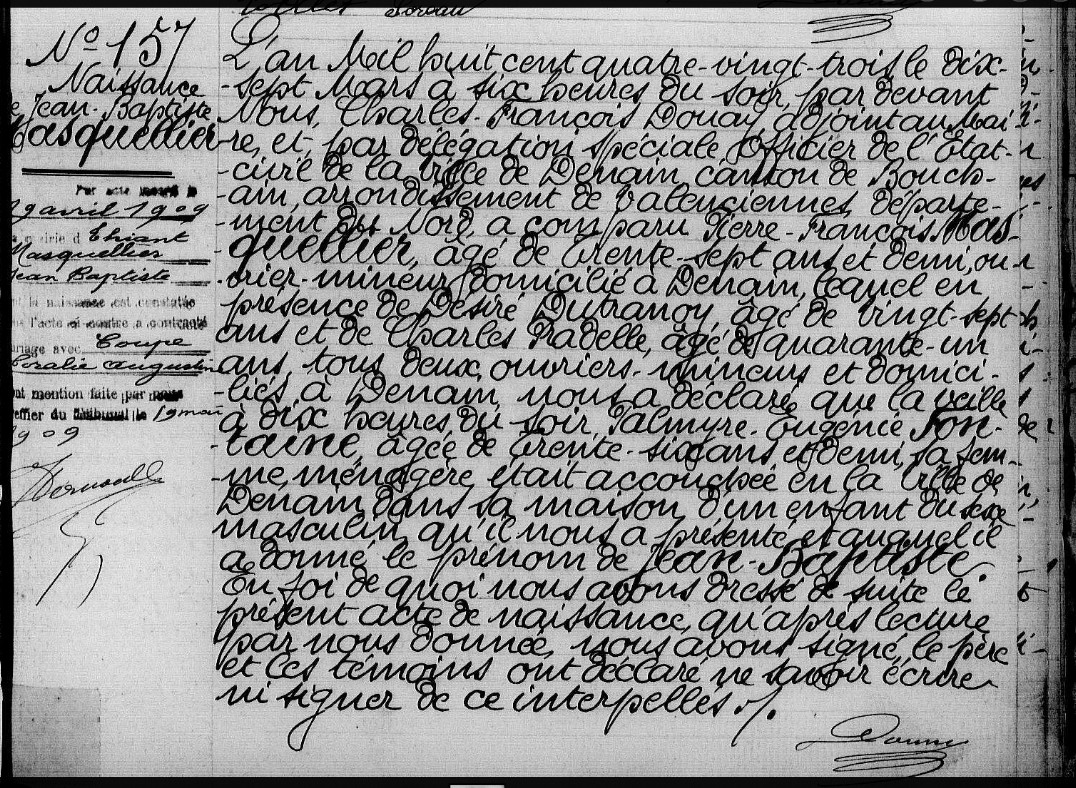 Nº 157
Naissance
de Jean-Baptiste
Masquellier
Par acte inscrit le
19 avril 1909
mairie d Thiant
Masquellier
Jean Baptiste
dont la naissance est constatée
dans l'acte ci-contre a contracté
mariage avec Coupe
Coralie Augustine
dont mention faite par nous
greffier du Tribunal le 19 mai
1909
L'an Mil huit cent quatre-vingt-trois le dix-
-sept Mars à six heures du soir, par devant
Nous, Charles-François Douay, adjoint au Mai-
-re, et par délégation spéciale Officier de l'État-
-civil de la ville de Denain, canton de Bouch-
-ain, arrondissement de Valenciennes, départe-
-ment du Nord, a comparu Pierre-François Mas-
quellier, âgé de trente-sept ans et demi, ou-
-vrier-mineur, domicilié à Denain, lequel en
présence de Désiré Dufranoy, âgé de vingt-sept
ans et de Charles Fradelle, âgé de quarante-un
ans, tous deux ouvriers-mineurs et domici-
-liés à Denain, nous a déclaré que la veille
à dix heures du soir, Palmyre-Eugénie Fon-
-taine, âgée de trente-six ans et demi, sa fem-
-me, ménagère, était accouchée en la Ville de
Denain, dans sa maison d'un enfant du sexe
masculin, qu'il nous a présenté et auquel il
a donné le prénom de Jean-Baptiste
En foi de quoi nous avons dressé de suite le
présent acte de naissance, qu'après lecture
par nous donnée, nous avons signé, le père
et les témoins ont déclaré ne savoir écrire
ni signer de ce interpellés ./.
Douay